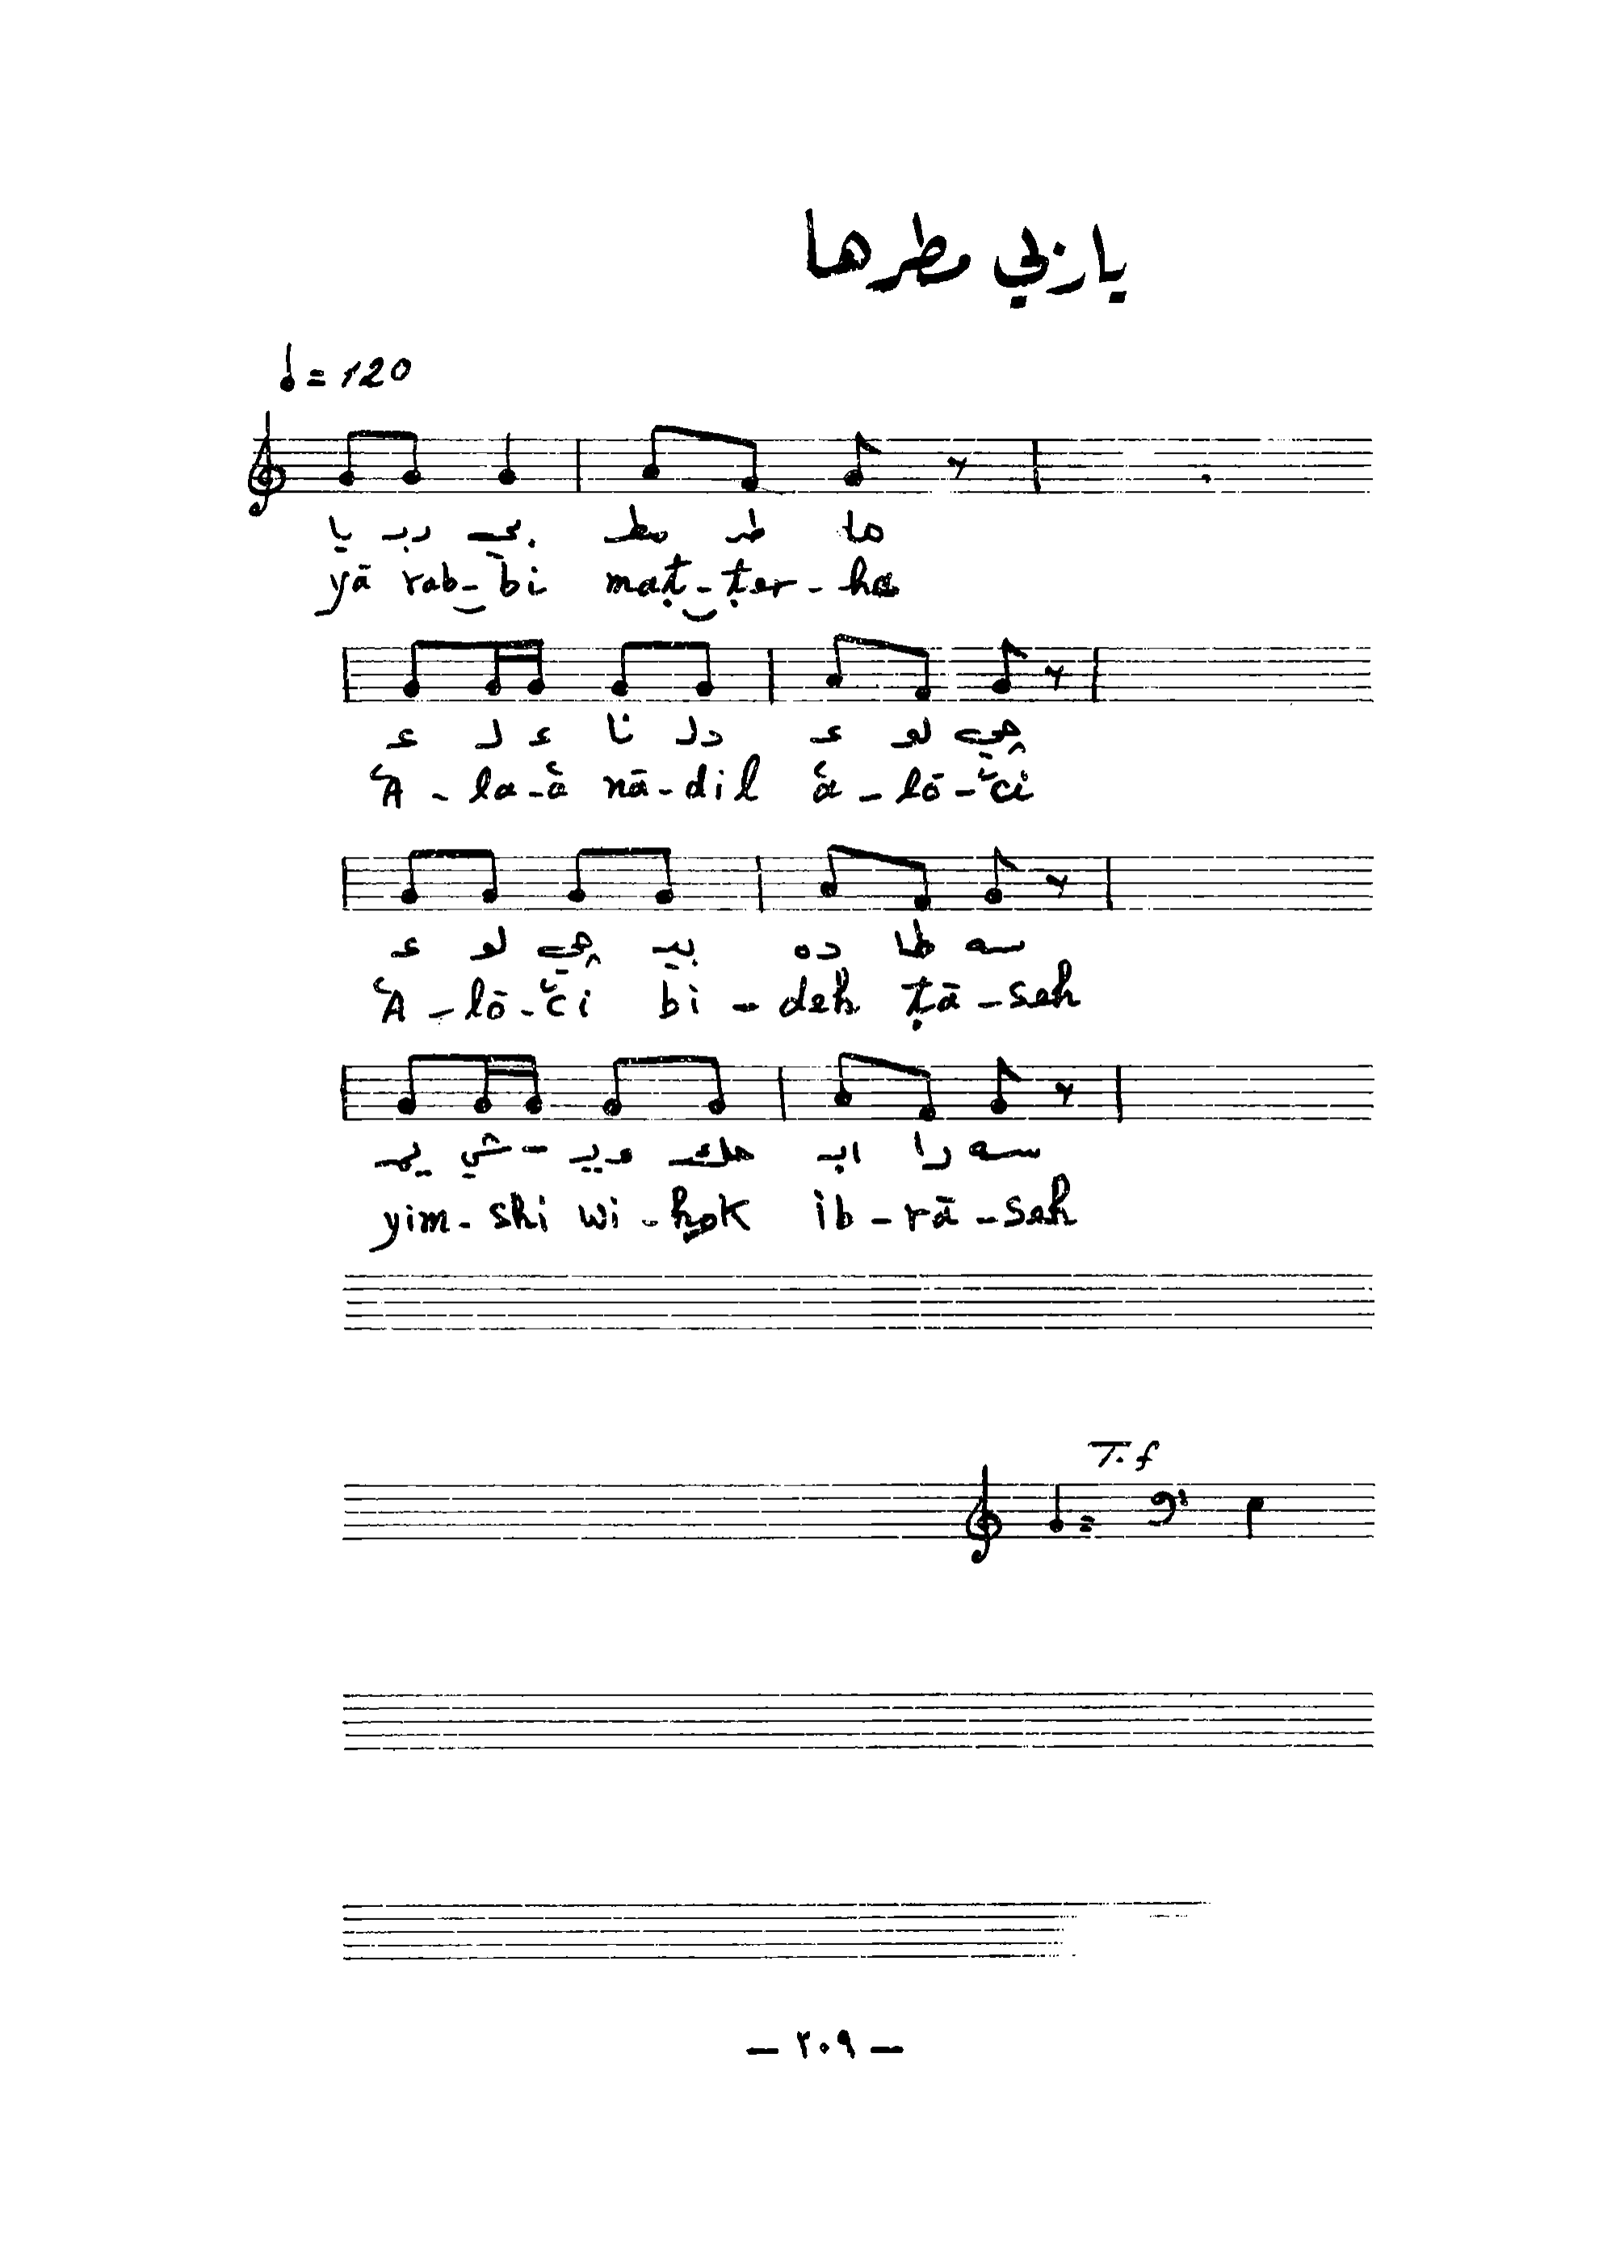 ياربي مطرها
♩ = 120
يا رب بي مطـ طر ها
yā rab-bi maṭ-ṭer-ha
ع لـ ع نا دلـ ع لو چي
ʿA-la-ʿa nā-dil ʿa-lō-či
ع لو چي بيـ ده طا سه
ʿA-lō-či bi-deh ṭā-seh
يمـ شي - ويـ حك ابـ را سه
yim-shi wi-ḥok ib-rā-seh
T.f
— ٢٠٩ —